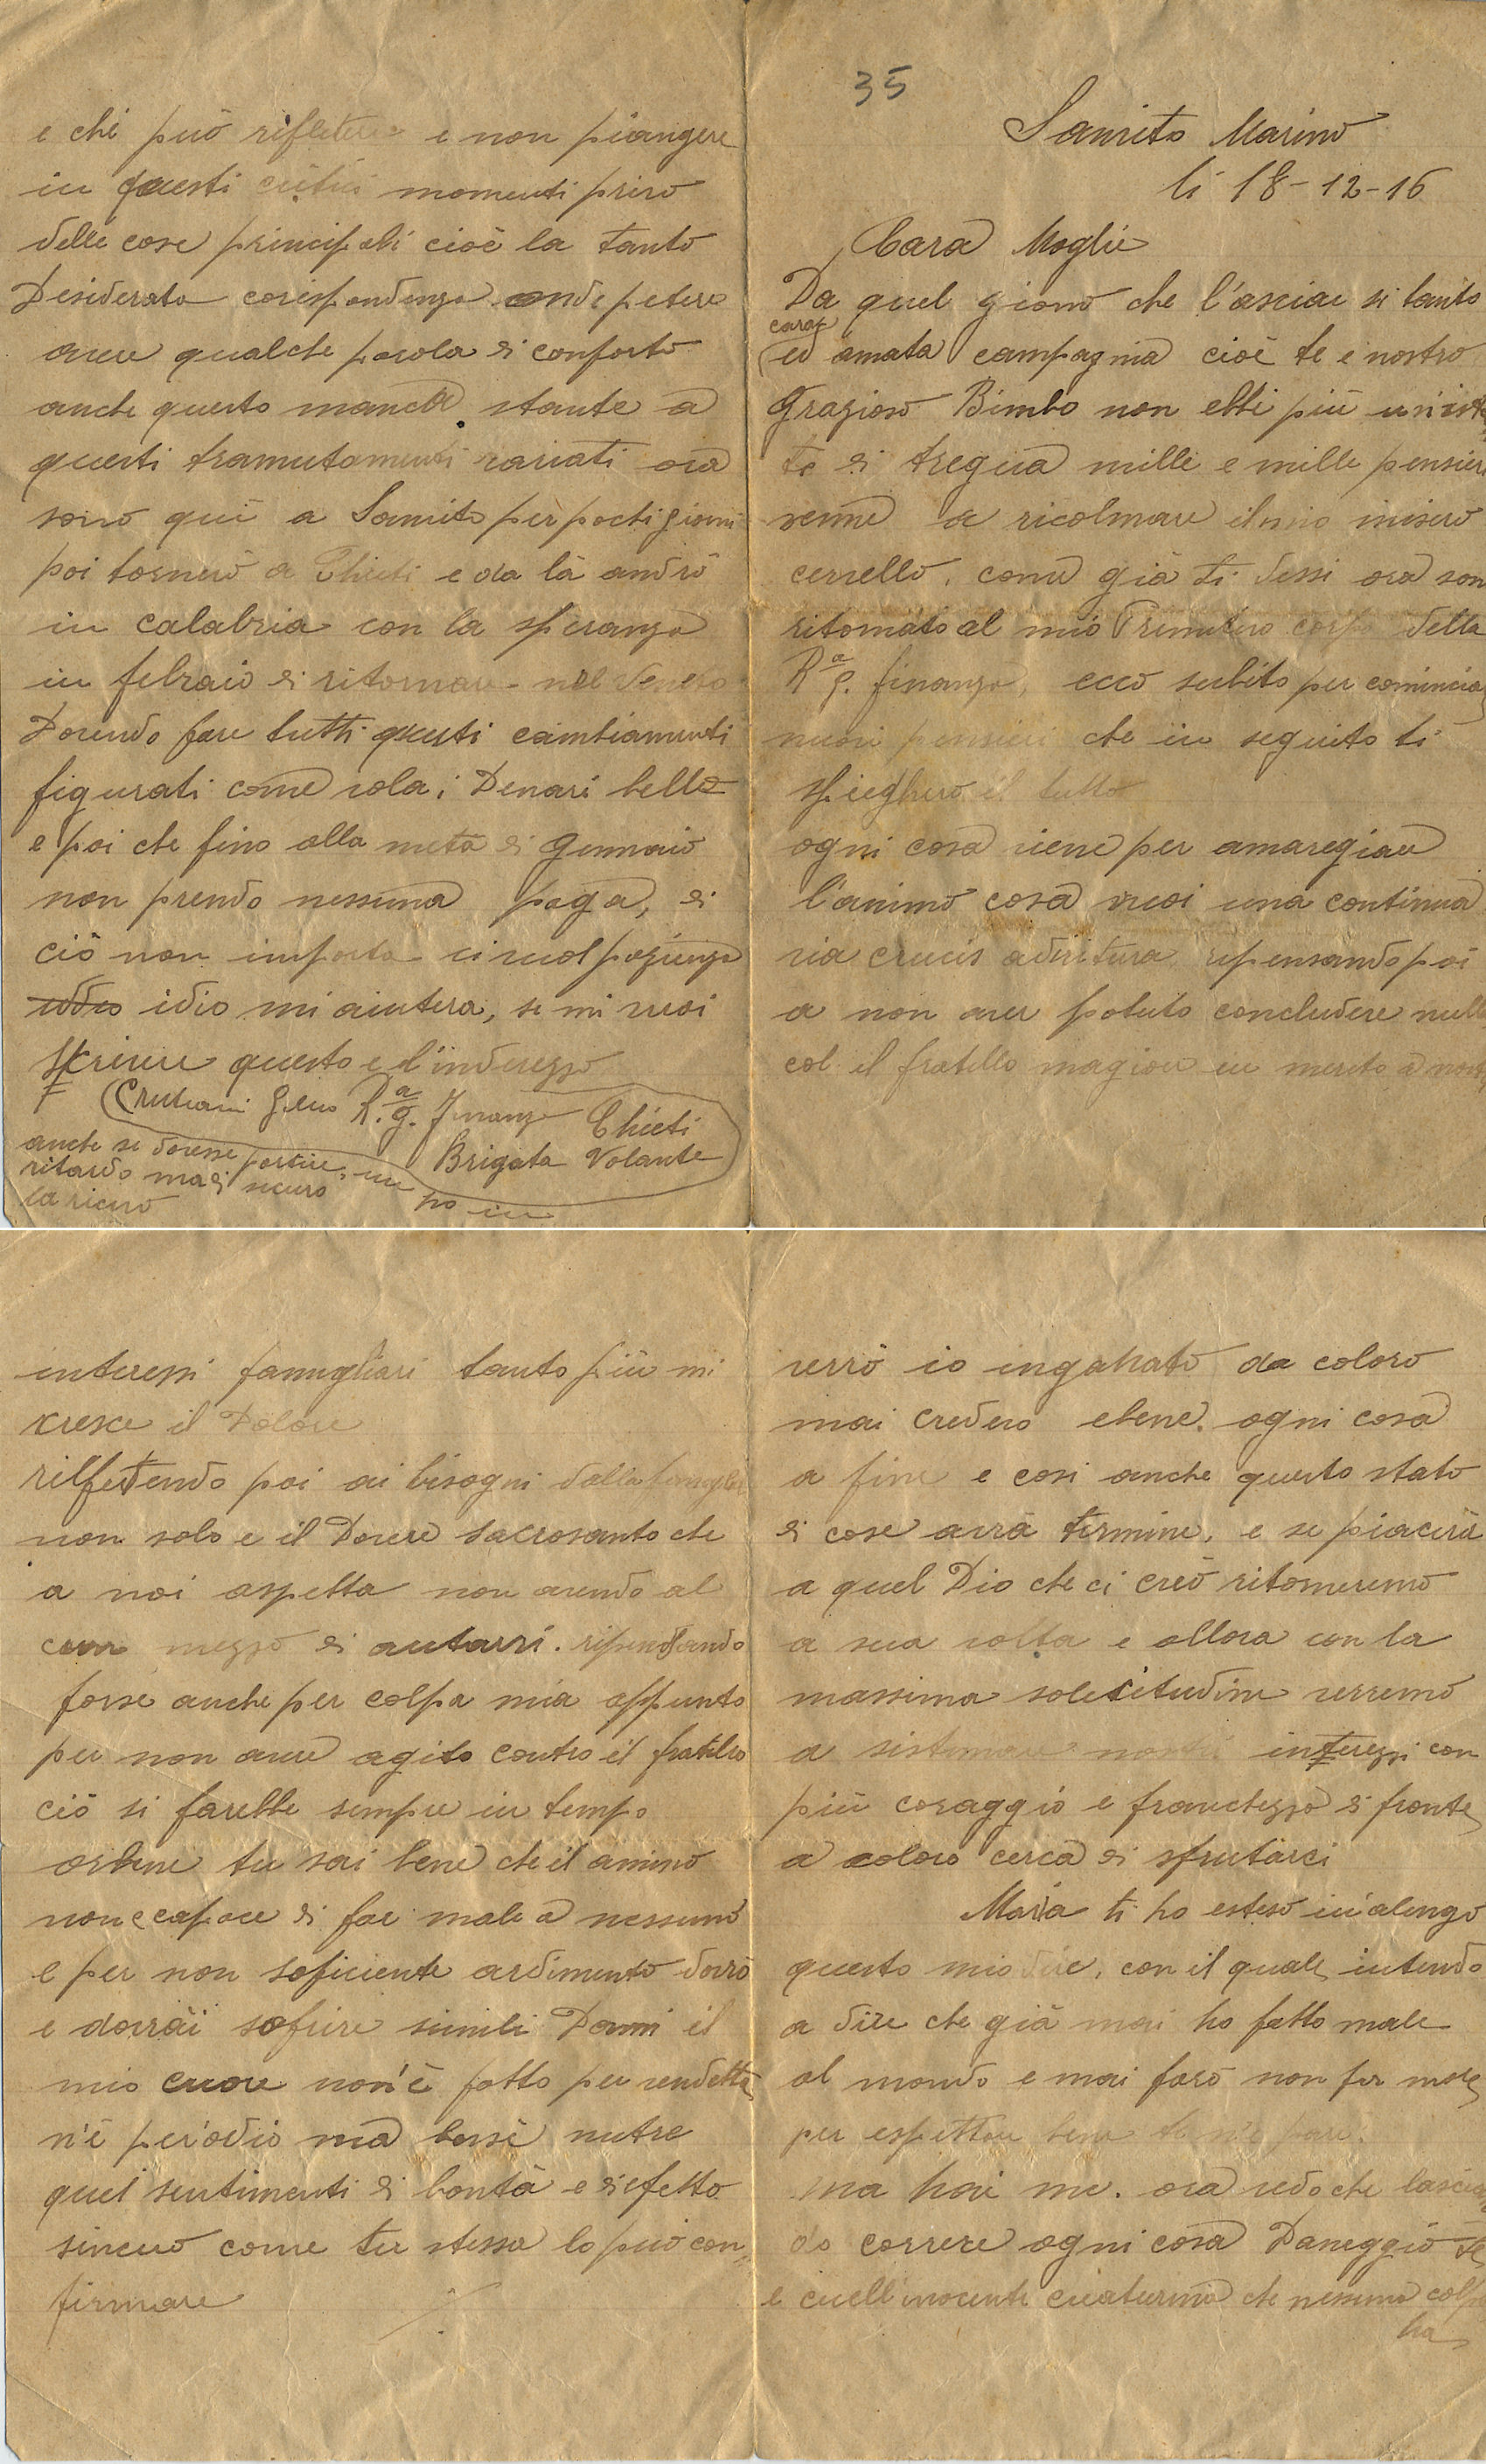 35
Sanvito Marino
li 18-12-16
Cara Moglie
Da quel giono che l'asciai si tanto
cara
ed amata campagnia cioè te e nostro
Grazioso Bimbo non ebbi più un'ista
te di tregua mille e mille pensieri
venne a ricolmare il mio misero
cervello, come già ti dessi ora son
ritornato al mio Primitivo corpo della
Ra g. finanza, ecco subito per cominciar
nuovi pensieri che in seguito ti
spiegherò il tutto
ogni cosa viene per amaregiare
l'animo cosa vuoi una continua
via crucis adiritura ripensando poi
a non aver potuto concludere nulla
col il fratello magiore in merito a nostri
interessi famigliari tanto più mi
cresce il Dolore
rilfetendo poi ai bisogni dalla famiglia
non solo e il Dovere sacrosanto che
a noi aspetta non avendo al
cun mezzo di autarvi. ripensando
forse anche per colpa mia appunto
per non avere agito contro il fratello
ciò si farebbe sempre in tempo
orbene tu sai bene che il animo
non e capace di far male a nessuno
e per non soficiente ardimento dovrò
e dovrai sofrire simili Danni il
mio cuore non'è fatto per vendetta
n'è per'odio ma bensì nutre
quei sentimenti di bontà e di efetto
sincero come tu stessa lo può con„
firmare
verrò io ingahato da coloro
mai credevo ebene. ogni cosa
a fine e cosi anche questo stato
di cose avrà termine, e se piacerà
a quel Dio che ci creò ritorneremo
a sua volta e allora con la
massima solecitudine verremo
a sistemare nostri interezzi con
più coraggio e franchezza di fronte
a coloro cerca di sfrutarci
Maria ti ho esteso in'alungo
questo mio dire, con il quale intendo
a dire che già mai ho fatto male
al mondo e mai farò non far male
per espettare bene
ma hoi me. ora vedo che lascian
do correre ogni cosa Daneggiò te
e cuell inocente creaturina che nessuna colpa
ha
e chi può rifletere e non piangere
in questi critici momenti privo
delle cose principali cioè la tanto
Desiderata corispondenza onde potere
avere qualche parola di conforto
anche questo manca stante a
questi tramutamenti variati ora
sono qui a Sanvito per pochi giorni
poi tornerò a Chieti e da là andrò
in calabria con la speranza
in febraio di ritornare nel Veneto
Dovendo fare tutti questi cambiamenti
figurati come vola i Denari bella
e poi che fino alla metà di Gennaio
non prendo nessuna paga, di
ciò non importa ci vuol pazienza
iddio idio mi aiutera, se mi vuoi
scrivere questo e l'inderezzo
Crutiani Gelio R.a g. Finanza Chieti
Brigata Volante
anche se dovesse partire, un po in
ritardo ma di sicuro
la ricevo